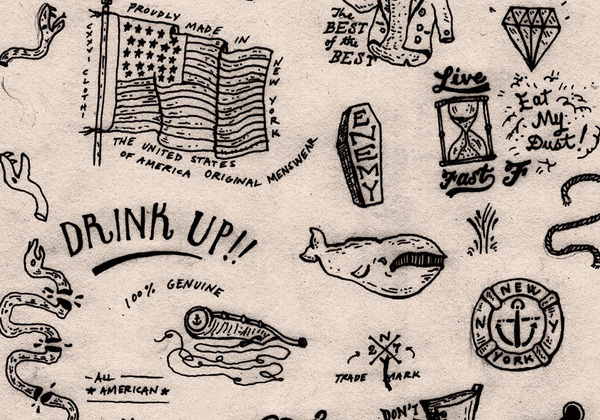 PROUDLY MADE IN
NEW YORK
THE UNITED STATES
OF AMERICA ORIGINAL MENSWEAR
The
BEST
of the
BEST
Live
Fast
Eat
My
Dust!
F
ENEMY
DRINK UP!!
100% GENUINE
-ALL-
★AMERICAN★
N
2 7
TRADE MARK
NEW
N Y
YORK
DON'T